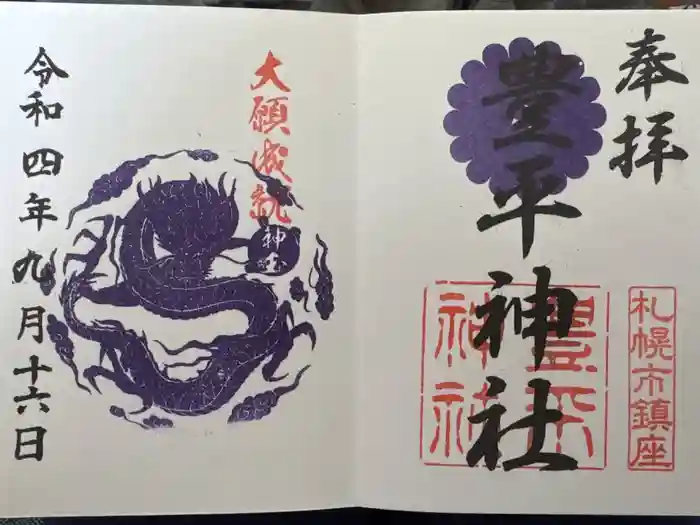 奉拝
豊平神社
豊平
神社
札幌市鎮座
大願成就
神玉
令和四年九月十六日